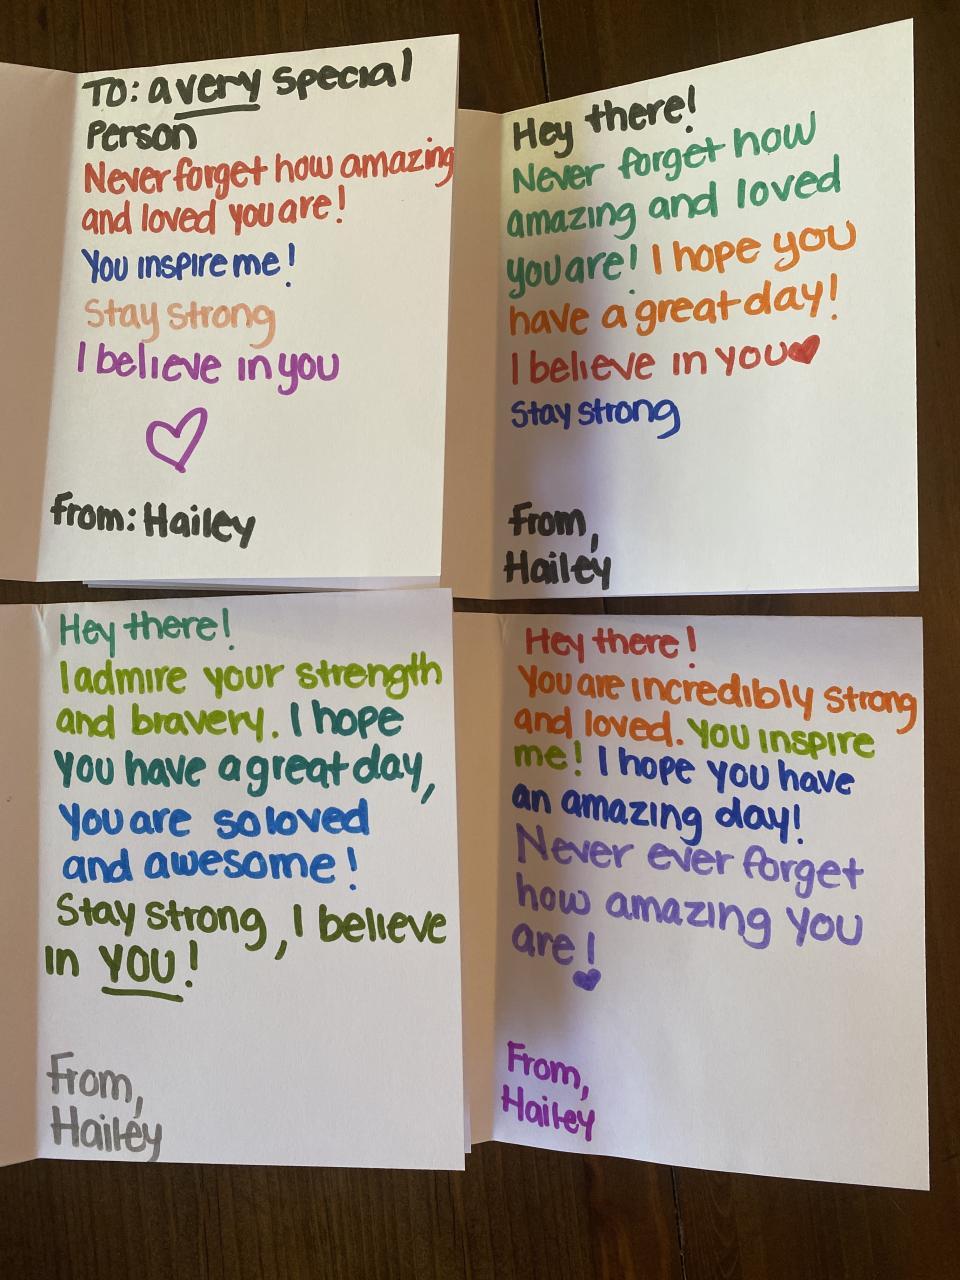 To: a very special
Person
Never forget how amazing
and loved you are!
You inspire me!
Stay strong
I believe in you
From: Hailey
Hey there!
Never forget how
amazing and loved
you are! I hope you
have a great day!
I believe in you
Stay strong
From,
Hailey
Hey there!
I admire your strength
and bravery. I hope
you have a great day,
You are so loved
and awesome!
Stay strong, I believe
in YOU!
From,
Hailey
Hey there!
You are incredibly strong
and loved. You inspire
me! I hope you have
an amazing day!
Never ever forget
how amazing you
are!
From,
Hailey